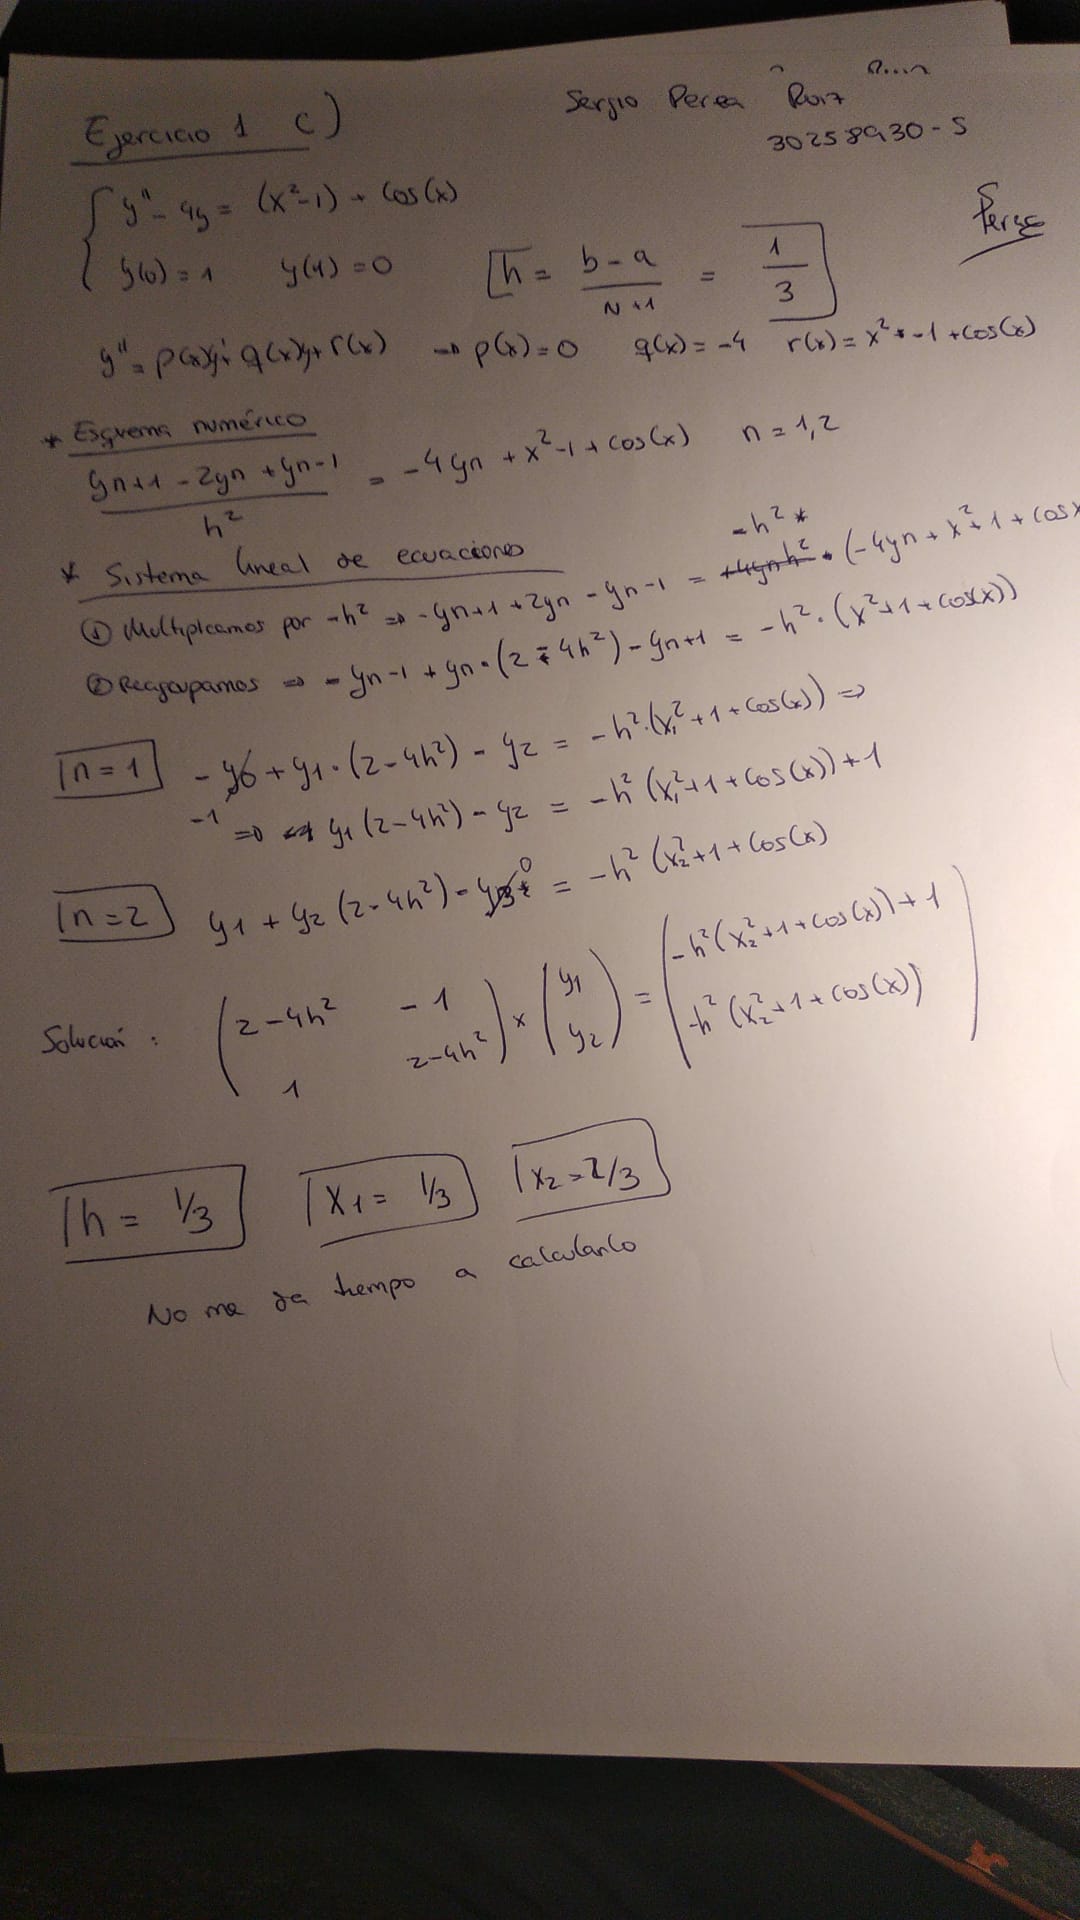 Sergio Perea Ruiz
Ejercicio 1 c)
30258930-S
y'' - 4y = (x²-1) + cos(x)
Perea
y(0) = 1 y(1) = 0 h = b-a / N+1 = 1/3
y'' = p(x)y' + q(x)y + r(x) → p(x) = 0 q(x) = -4 r(x) = x² -1 + cos(x)
* Esquema numérico
yn+1 - 2yn + yn-1 / h² = -4yn + x²-1 + cos(x) n = 1,2
* Sistema lineal de ecuaciones
① Multiplicamos por -h² ⇒ -yn+1 + 2yn - yn-1 = -h² * (-4yn + x²+1 + cosx
② Reagrupamos ⇒ -yn-1 + yn·(2-4h²) - yn+1 = -h²·(x²+1+cos(x))
n=1 -y0 + y1·(2-4h²) - y2 = -h²·(x1²+1+cos(x)) ⇒
-1 ⇒ y1(2-4h²) - y2 = -h²(x1²+1+cos(x))+1
n=2 y1 + y2(2-4h²) - y3 0 = -h²(x2²+1+cos(x)
Solución: (2-4h² -1 1 2-4h²) × (y1 y2) = (-h²(x2²+1+cos(x))+1 -h²(x2²+1+cos(x)))
h = 1/3 x1 = 1/3 x2 = 2/3
No me da tiempo a calcularlo